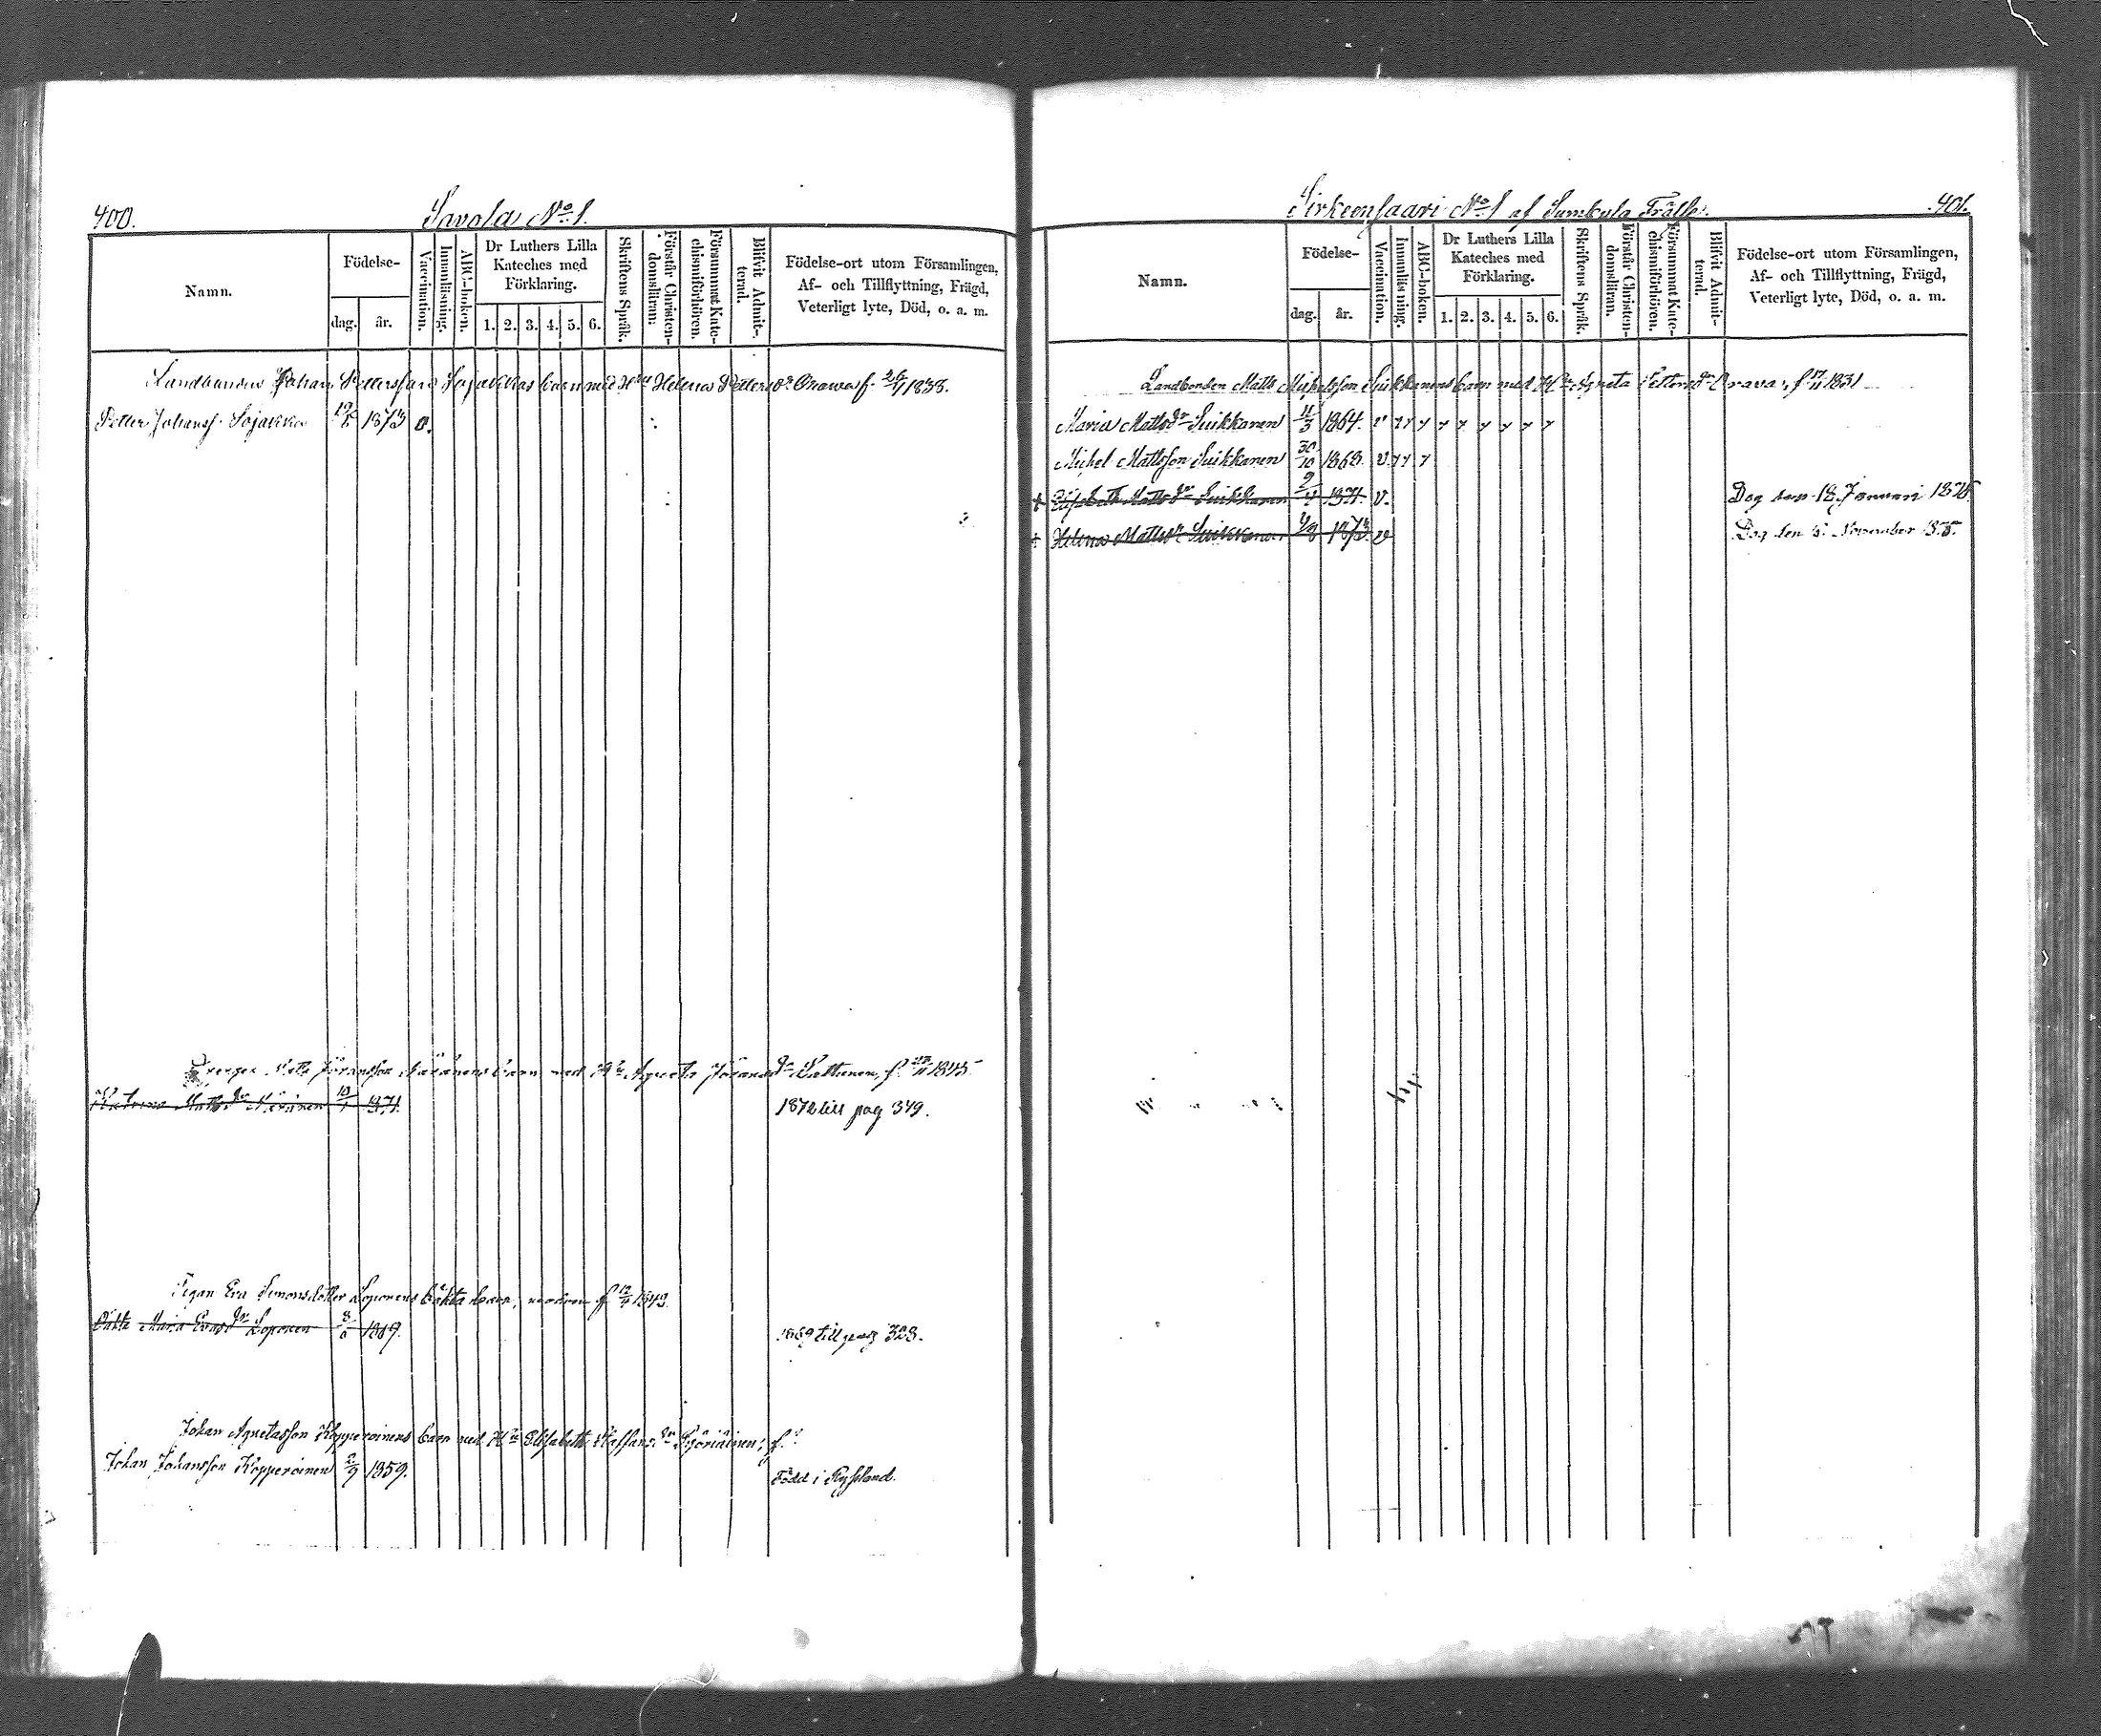 400.
Savola No 1.
Namn.
Födelse-
dag.
år.
Vaccination.
Innanläsning.
ABC-boken.
Dr Luthers Lilla
Kateches med
Förklaring.
1. 2. 3. 4. 5. 6.
Skriftens Språk.
Förstår Christen-
domsläran.
Försummat Kate-
chismiförhören.
Blifvit Admit-
terad.
Födelse-ort utom Församlingen,
Af- och Tillflyttning, Frägd,
Veterligt lyte, Död, o. a. m.
Landbonden Johan Pettersson Sojakkas barn med Hu Helena Pettersdr Orawa f. 26/1 1838.
Petter Johanss. Sojakka 1873 v.
Matts Jöransson barn med Hu Agneta Jöransdr f. 1845
Katrina Mattsdr 10/1 1871. 1872 till pag 349.
Pigan Eva Simonsdotter Loponens oäkta barn, modren f 1843.
Oäkta Maria Evasdr Loponen 1869. 1869 till pag 323.
Johan Agnetasson Kopperoinens barn med Hu Elisabeth Staffansdr f.
Johan Johansson Kopperoinen 2/9 1859. Född i Ryssland.
Sirkeonsaari No 1 af Sumbula Frälse.
401.
Namn.
Födelse-
dag.
år.
Vaccination.
Innanläsning.
ABC-boken.
Dr Luthers Lilla
Kateches med
Förklaring.
1. 2. 3. 4. 5. 6.
Skriftens Språk.
Förstår Christen-
domsläran.
Försummat Kate-
chismiförhören.
Blifvit Admit-
terad.
Födelse-ort utom Församlingen,
Af- och Tillflyttning, Frägd,
Veterligt lyte, Död, o. a. m.
Landbonden Matts Michelsson Suikkanens barn med Hu Agneta Pettersdr Orava, f 17/11 1831
Maria Mattsdr Suikkanen 11/3 1864. v
Michel Mattsson Suikkanen 30/10 1868 v
+ Elisabeth Mattsdr Suikkanen 9/4 1871. v. Dog den 18 Januari 1875.
+ Helena Mattsdr Suikkanen 1873 v Dog den 5 November